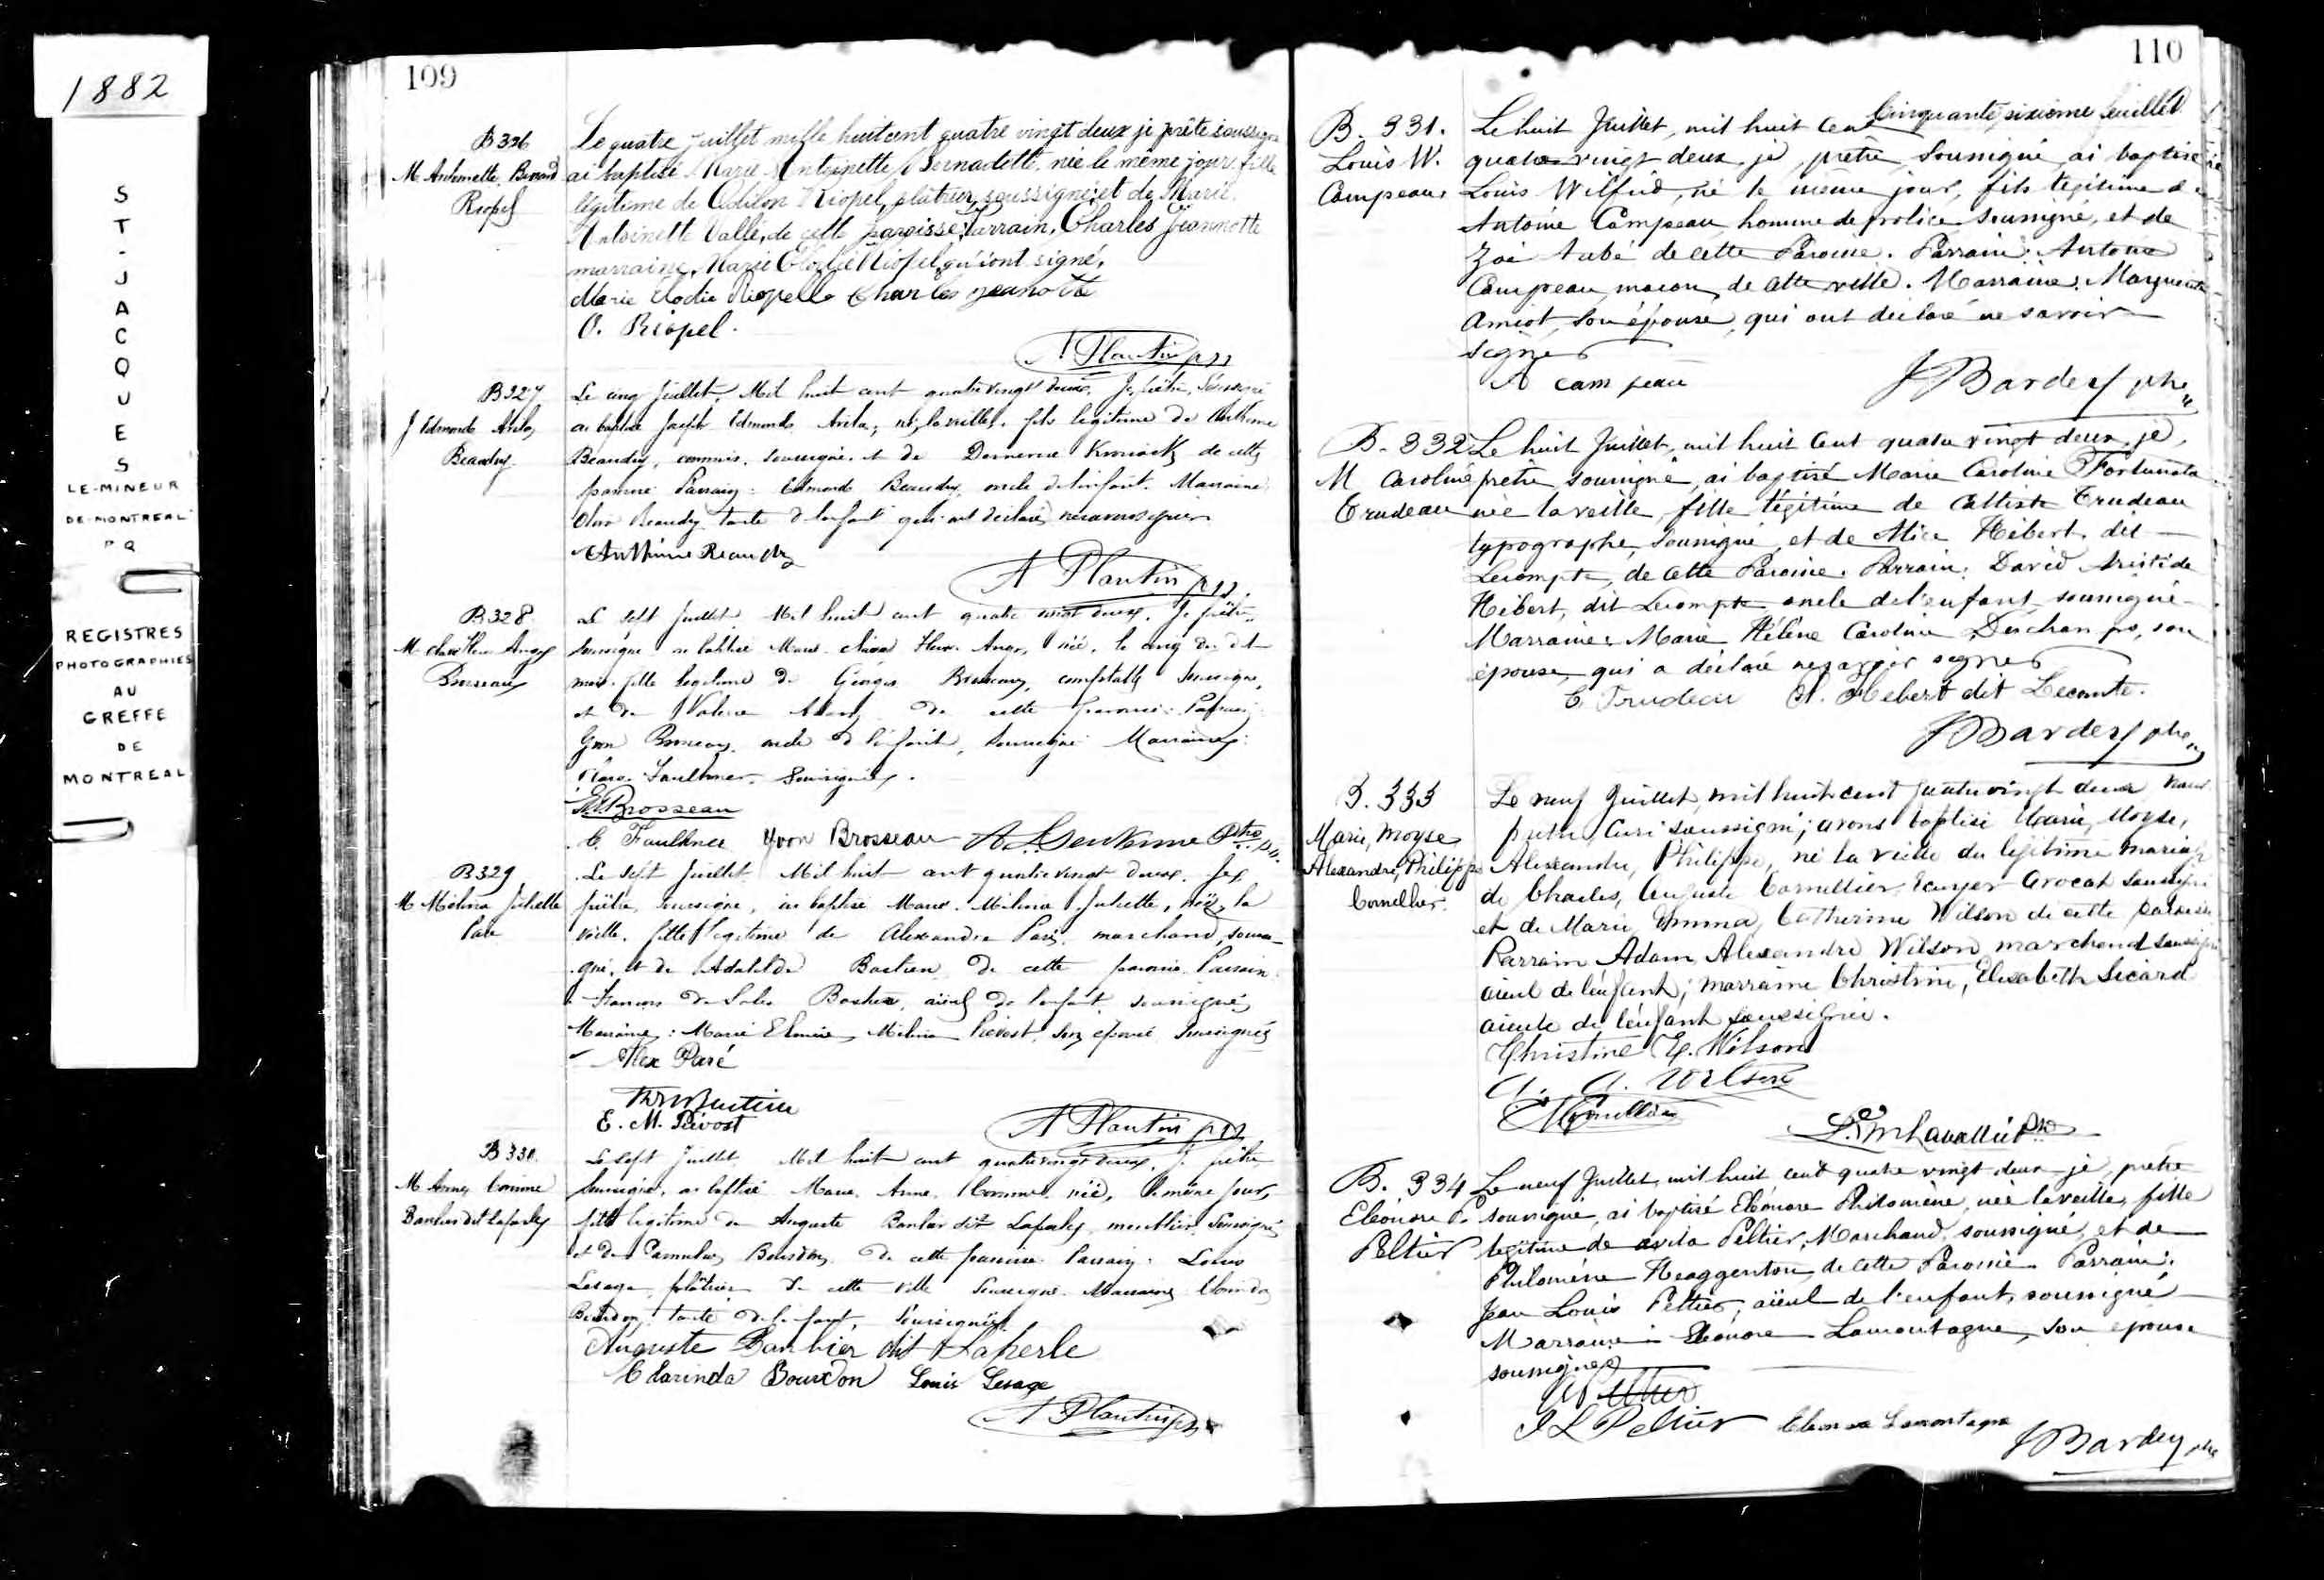 1882
ST-JACQUES
LE-MINEUR
DE-MONTREAL
P Q
REGISTRES
PHOTOGRAPHIES
AU
GREFFE
DE
MONTREAL
109
B326
M Antoinette Bernard
Riopel
Le quatre juillet mille huit cent quatre vingt deux je prêtre soussigné
ai baptisé Marie Antoinette Bernadette, née le même jour, fille
légitime de Odilon Riopel, plâtrier, soussigné et de Marie
Antoinette Vallé, de cette paroisse, Parrain, Charles Jeannotte
marraine, Marie Elodie Riopel qui ont signé,
Marie Elodie Riopelle Charles Jeanotte
O. Riopel.
A Plantin pss
B327
J Edmond Arila
Beaudry
Le cinq Juillet, Mil huit cent quatre vingt deux. Je, prêtre, soussigné
ai baptisé Joseph Edmond Arila, né, la veille, fils legitime de Anthime
Beaudry, commis, soussigné, et de de cette
paroisse Parrain: Edmond Beaudry, oncle de l'enfant. Marraine
Beaudry, tante de l'enfant qui ont déclaré ne savoir signer
Anthime Beaudry
A Plantin pss
B328.
Brosseau
Le sept Juillet Mil huit cent quatre vingt deux. Je prêtre
soussigné ai baptisé Marie née, le cinq du dit
mois fille legitime de Georges Brosseau, comptable soussigné,
et de de cette paroisse: Parrain
Yvon Brosseau, oncle de l'enfant, soussigné Marraine:
Faulkner. Soussignée.
Brosseau
C. Faulkner Yvon Brosseau A. L. Sentenne Ptre
B329
M Mélina Juliette
Paré
Le sept Juillet Mil huit cent quatre vingt deux. Je,
prêtre, soussigné, ai baptisé Marie Mélina Juliette, née, la
veille, fille legitime de Alexandre Paré, marchand, soussi-
gné, et de Adalilda Bastien de cette paroisse. Parrain
François de Sales Bastien, aïeul de l'enfant soussigné
Marraine: Marie Elmire Mélina Prévost, son épouse soussignée
Alex Paré
E. M. Prévost
A Plantin pss
B330.
M Anne Corinne
Barbier dit Laperle
Le sept Juillet Mil huit cent quatre vingt deux. Je prêtre
soussigné, ai baptisé Marie Anne Corinne née, le même jour,
fille legitime de Auguste Barbier dit Laperle, meublier Soussigné
et de Bourdon de cette paroisse. Parrain: Louis
Lesage, plâtrier de cette ville soussigné. Marraine Clarinda
Bourdon, tante de l'enfant, Soussignée.
Auguste Barbier dit Laperle
Clarinda Bourdon Louis Lesage
A Plantin pss
110
Cinquante sixième feuillet
B. 331.
Louis W.
Campeau
Le huit Juillet, mil huit cent
quatre vingt deux, je, prêtre soussigné ai baptisé
Louis Wilfrid, né le même jour, fils légitime de
Antoine Campeau homme de police soussigné, et de
Zoé Aubé de cette Paroisse. Parrain: Antoine
Campeau, maçon, de cette ville. Marraine: Marguerite
Amiot, son épouse, qui ont déclaré ne savoir
signer
A campeau
J Bardey ptre
B. 332
M Caroline
Trudeau
Le huit Juillet, mil huit cent quatre vingt deux, je,
prêtre soussigné, ai baptisé Marie Caroline Fortunata
née la veille, fille légitime de Calliste Trudeau
typographe, soussigné, et de Alice Hébert dit
Lecompte, de cette Paroisse. Parrain: David Aristide
Hébert, dit Lecompte oncle de l'enfant soussigné
Marraine: Marie Hélène Caroline Deschamps, son
épouse, qui a déclaré ne savoir signer
C. Trudeau A. Hebert dit Lecomte.
J Bardey ptre
B. 333
Marie, Moyse
Alexandre, Philippe
Cornellier.
Le neuf Juillet, mil huit cent quatre vingt deux nous
prêtre Curé soussigné, avons baptisé Marie, Moyse,
Alexandre, Philippe, né la veille du légitime mariage
de Charles, Auguste Cornellier, Ecuyer Avocat soussigné
et de Marie Emma, Catherine Wilson de cette paroisse
Parrain Adam, Alexandre Wilson marchand soussigné
aïeul de l'enfant; marraine Christine, Elisabeth Sicard
aieule de l'enfant soussignée.
Christine E. Wilson
A. A. Wilson
Cornellier
B. 334
Eléonore P.
Peltier
Le neuf Juillet, mil huit cent quatre vingt deux je, prêtre
soussigné, ai baptisé Eléonore Philomène, née la veille, fille
légitime de Avila Peltier, Marchand, soussigné, et de
Philomène Heaggenton, de cette Paroisse Parrain:
Jean Louis Peltier, aïeul de l'enfant, soussigné
Marraine: Eléonore Lamontagne, son épouse
soussignée
J L Peltier Eleonore Lamontagne
J Bardey ptre